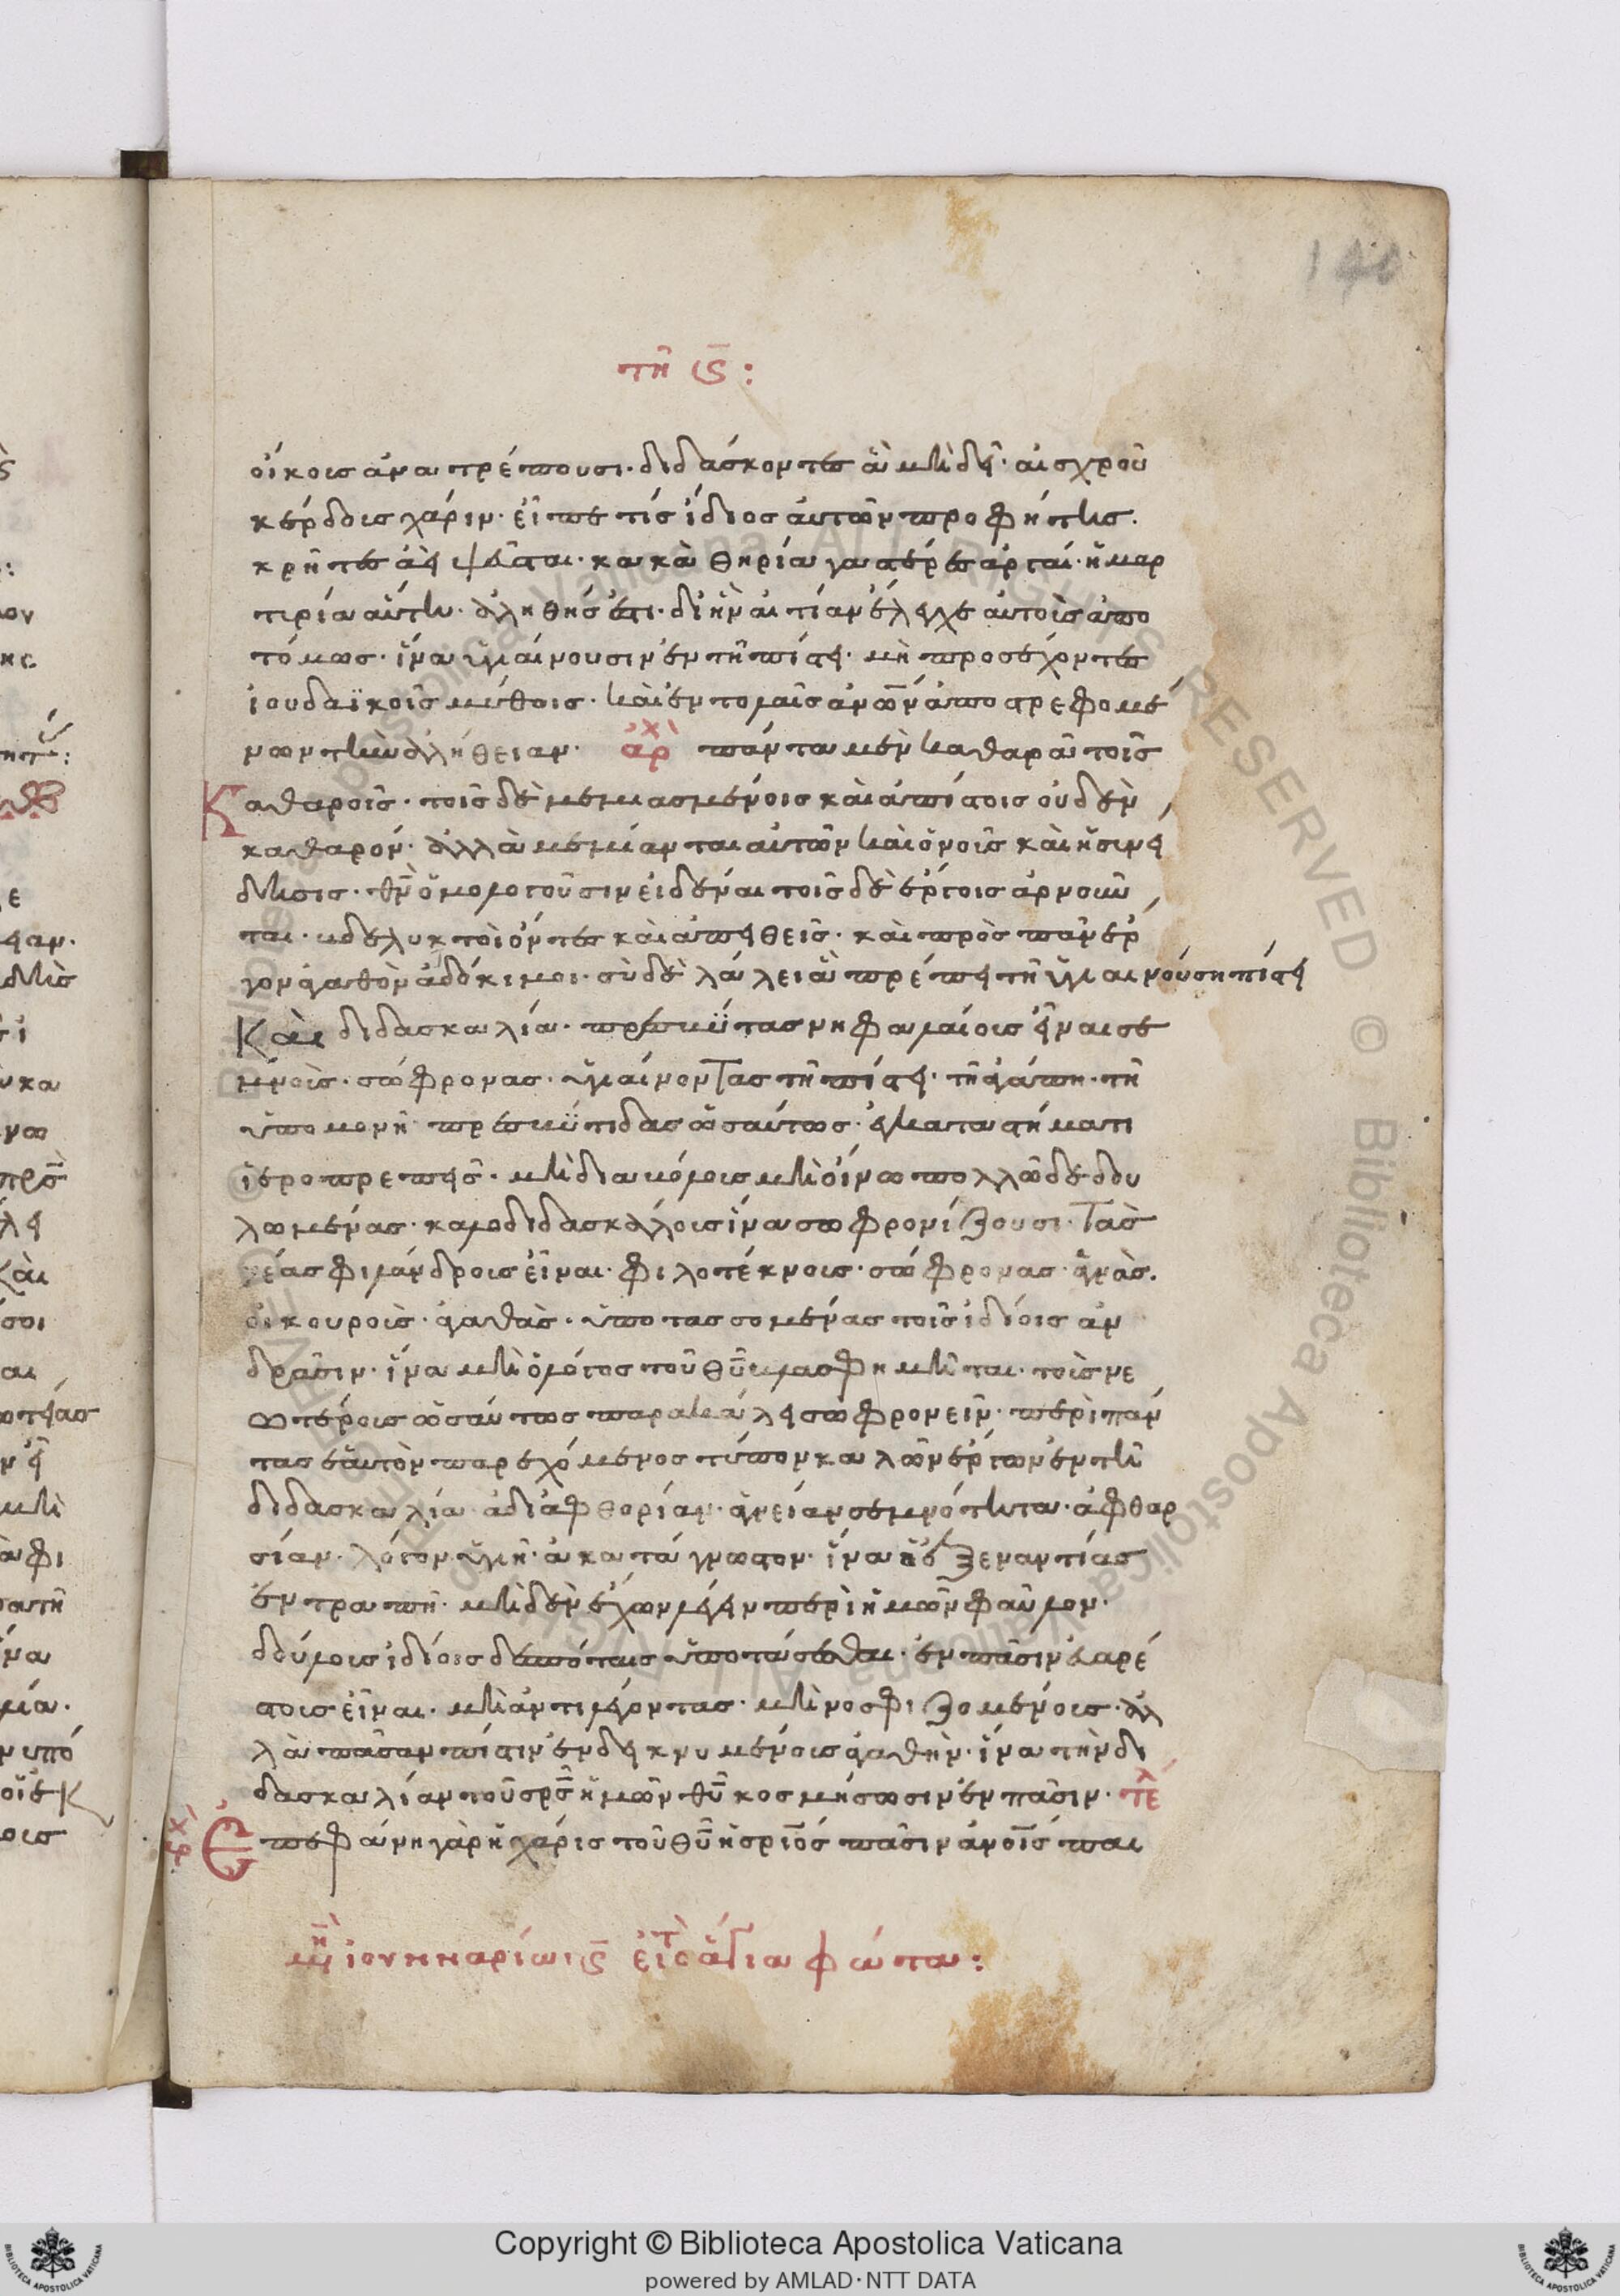 140
τῆ ϛ̅:
οίκοις ἀνατρέπουσι· διδάσκοντες ἃ μὴ δεῖ· αἰσχροῦ
κέρδους χάριν· εἶπέ τις ἴδιος αὐτῶν προφήτης·
κρῆτες ἀεὶ ψεῦσται· κακὰ θηρία γαστέρες ἀργαί· ἡ μαρ
τυρία αὕτη· ἀληθής ἐστι· δι ἣν αἰτίαν ἔλεγχε αὐτοὺς ἀπο
τόμως· ἵνα ὑγιαίνουσιν ἐν τῆ πίστει· μὴ προσέχοντες
ἰουδαϊκοῖς μύθοις· καὶ ἐντολαῖς ἀνων ἀποστρεφομέ
νων τὴν ἀλήθειαν· ἀρχ πάντα μὲν καθαρὰ τοῖς
Καθαροῖς· τοῖς δὲ μεμιασμένοις καὶ ἀπίστοις οὐδὲν
καθαρόν· ἀλλὰ μεμίανται αὐτῶν καὶ ὁ νοῦς καὶ ἡ συνεί
δησις· θν ὁμολογοῦσιν εἰδέναι τοῖς δὲ ἔργοις ἀρνοῦν
ται· βδελυκτοὶ ὄντες καὶ ἀπειθεῖς· καὶ πρὸς πᾶν ἔρ
γον ἀγαθὸν ἀδόκιμοι· σὺ δὲ λάλει ἃ πρέπει τῆ ὑγιαινούση πίστει
Καὶ διδασκαλία· πρεσβύτας νηφαλαίους εἶναι σε
μνούς· σώφρονας· ὑγιαίνοντας τῆ πίστει· τῆ ἀγάπη· τῆ
ὑπομονῆ· πρεσβύτιδας ὡσαύτως· ἐν καταστήματι
ἱεροπρεπεῖς· μὴ διαβόλους μὴ οἴνω πολλῶ δεδου
λωμένας· καλοδιδασκάλους ἵνα σωφρονίζουσι· Τὰς
νέας φιλάνδρους εἶναι· φιλοτέκνους· σώφρονας· ἁγνὰς·
οἰκουροὺς· ἀγαθὰς· ὑποτασσομένας τοῖς ἰδίοις ἀν
δράσιν· ἵνα μὴ ὁ λόγος τοῦ θυ βλασφημῆται· τοὺς νε
ωτέρους ὡσαύτως παρακάλει σωφρονεῖν· περὶ πάν
τας ἑαυτὸν παρεχόμενος τύπον καλῶν ἔργων ἐν τῆ
διδασκαλία ἀδιαφθορίαν· ἁγνείαν σεμνότητα· ἀφθαρ
σίαν· λόγον ὑγιῆ· ἀκατάγνωστον· ἵνα ὁ ἐξ ἐναντίας
ἐντραπῆ· μηδὲν ἔχων λέγειν περὶ ἡμῶν φαῦλον·
δούλους ἰδίοις δεσπόταις ὑποτάσεσθαι· ἐν πᾶσιν εὐαρέ
στους εἶναι· μὴ ἀντιλέγοντας· μὴ νοσφιζομένους· ἀλ
λὰ πᾶσαν πίστιν ἐνδεικνυμένους ἀγαθήν· ἵνα τὴν δι
δασκαλίαν τοῦ σρς ἡμῶν θυ κοσμήσωσιν ἐν πᾶσιν· τελ
ἀρχ Ἐπεφάνη γὰρ ἡ χάρις τοῦ θυ ἡ σριος πᾶσιν ἀνοις παι
μην ιουννουαρίω ιϛ̅ εἰς τὰ ἅγια φώτα: